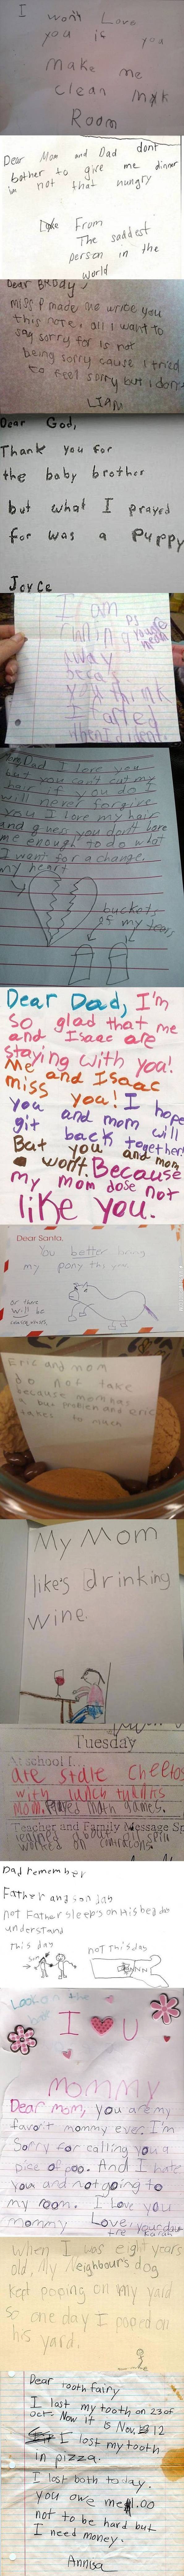 I won't Love
you is you
make me
clean my
Room
Dear Mom and Dad dont
bother to give me dinner
im not that hungry
From
The saddest
person in the
world
Dear Brody,
miss P made me wrice you
this note. all I want to
say sorry for is not
being sorry cause I tried
to feel sorry but i dont
LIAM
Dear God,
Thank you for
the baby brother
but what I prayed
for was a Puppy
Joyce
I am
runing
away
becas
you think
I farted
when I dident.
PS
you're
mean
Dad I love you
but you can't cut my
hair if you do I
will never forgive
you I love my hair
and I guess you don't love
me enough to do what
I want for a change.
my heart
buckets
of my tears
Dear Dad, I'm
so glad that me
and Isaac are
staying with you!
Me and Isaac
miss you! I hope
you and mom will
git back together!
But you and mom
wont Because
my mom dose not
like you.
Dear Santa,
You better bring
my pony this year
or there
will be
Eric and mom
do not take
because mom has
a bus problem and eric
takes to much
My Mom
like's drinking
wine.
Tuesday
At school I...
ate stale cheetos
with lunch
mom. Played math games.
Teacher and Family Message
learned about
worked on
Dad remember
Father and son day
not Father sleeps on His bed
understand
This day
not This day
Look on the
I U
Mommy
Dear mom, you are my
favorit mommy ever. I'm
Sorry for calling you a
pise of poo. And I hate
you and not going to
my room. I Love you
mommy Love, your dau
When I was eight years
old, my neighbours dog
kept pooping on my yard
so one day I pooped on
his yard.
Dear Tooth fairy
I lost my tooth on 23 of
oct. Now it is Nov. 12
I lost my tooth
in pizza.
I lost both today.
you owe me 1.00
not to be hard but
I need money.
Annisa